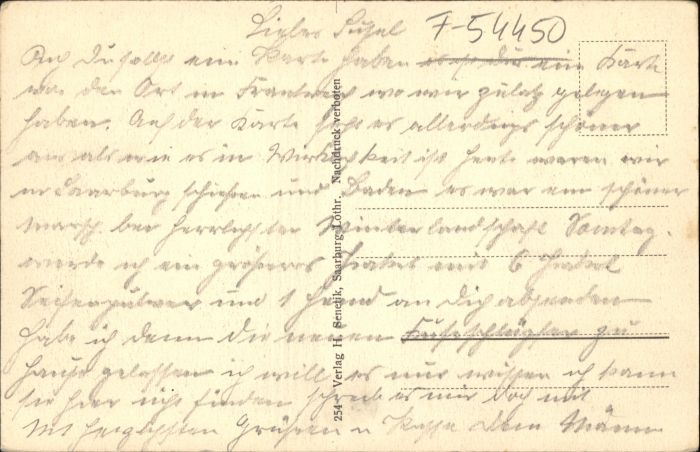 Liebes Susel F-54450
Auch Du sollst eine Karte haben ein Karte
von den Ort in Frankreich wo wir zuletz gelegen
haben. Auf der Karte sieht es allerdings schöner
aus als wie es in Wirklichkeit ist heute waren wir
in Saarburg schießen und Baden es war ein schöner
marsch bei herrlichster Winterlandschaft Sonntag
werde ich ein größeres Paket mit 6 Paket
Seifenpulver und 1 Hemd an Dich absenden
habe ich denn die neuen zu
hause gelassen ich will es nur wissen ich kann
sie hier nicht finden schreib es mir doch mit
Mit herzlichsten Grüßen u Küsse Dein Männe
254 Verlag H. Senetik, Saarburg Lothr. Nachdruck verboten